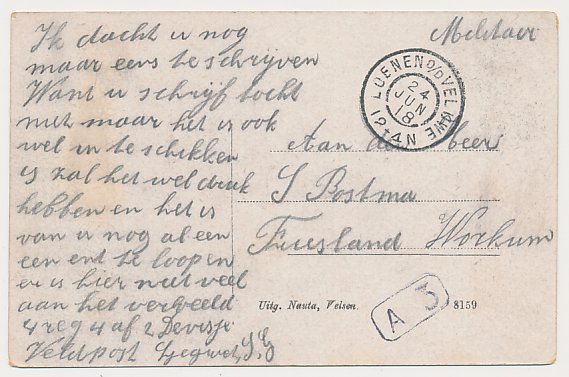 Ik dacht u nog
maar eens te schrijven
Want u schrijf tocht
niet maar het is ook
wel in te schikken
is zal het wel druk
hebben en het is
van u nog al een
een ent te loopen
er is hier niet veel
aan het verbeeld
4 reg 4 af 2 Devisje
Veldpost Legwet, S.G
Militair
LOENEN O/D VELUWE
24
JUN
18
12-4N
Aan den heer
S Postma
Friesland Workum
Uitg. Nauta, Velsen.
A 3
8159